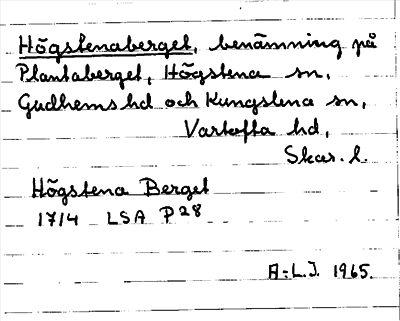 Högstenaberget, benämning på
Plantaberget, Högstena sn,
Gudhems hd och Kungslena sn,
Vartofta hd,
Skar. l.
Högstena Berget
1714 LSA P28
A-L.J. 1965.